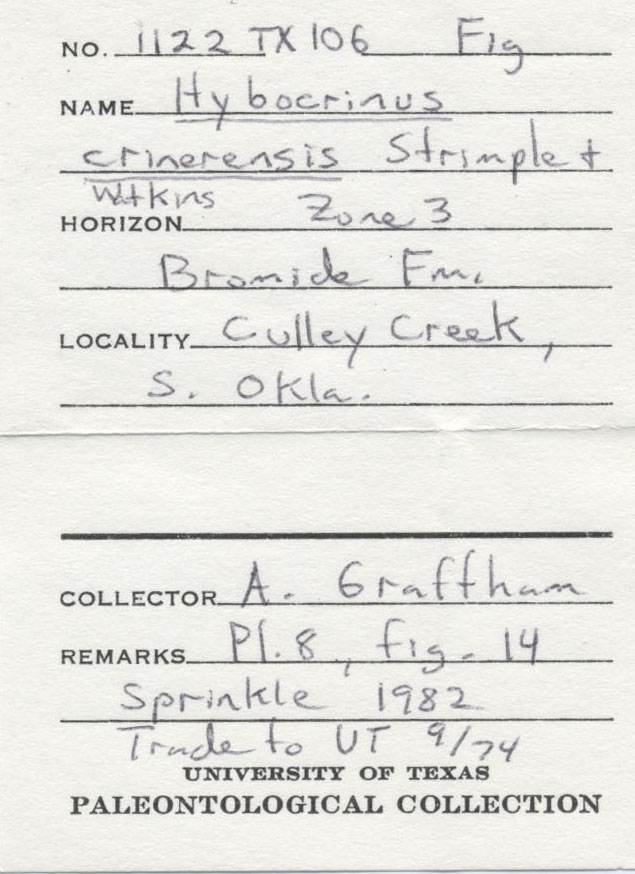 NO. 1122 TX 106 Fig
NAME Hybocrinus
crinerensis Strimple +
Watkins
HORIZON Zone 3
Bromide Fm.
LOCALITY Culley Creek,
S. Okla.
COLLECTOR A. Graffham
REMARKS Pl. 8, fig. 14
Sprinkle 1982
Trade to UT 9/74
UNIVERSITY OF TEXAS
PALEONTOLOGICAL COLLECTION